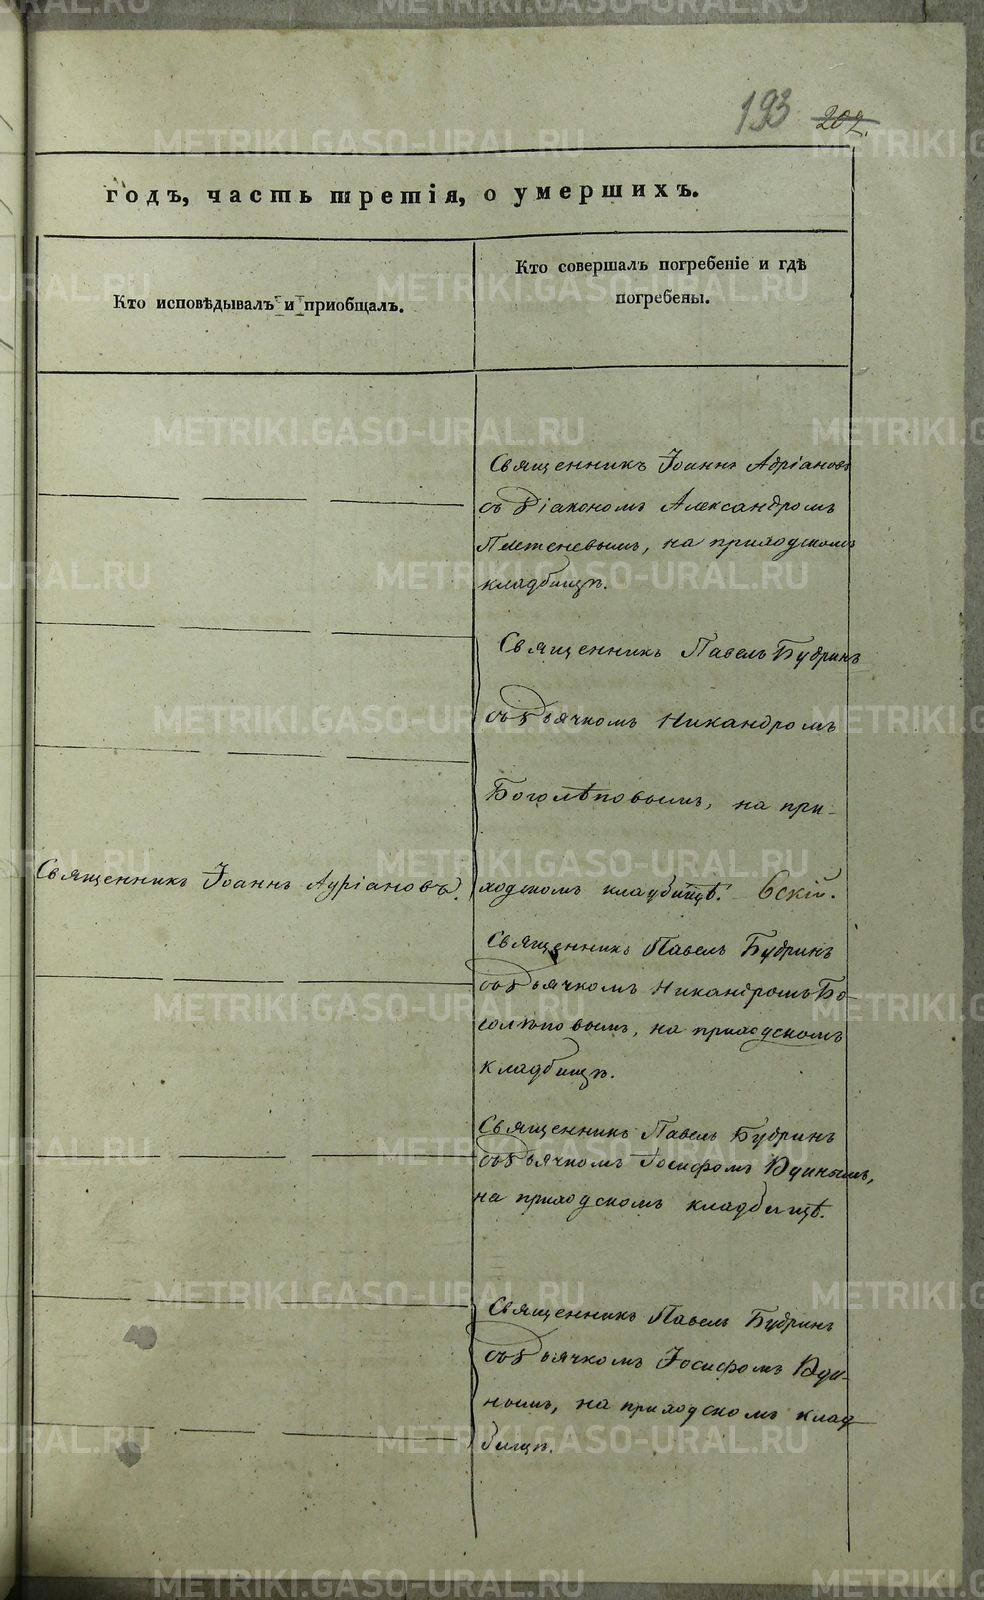 193 202.
годъ, часть третія, о умершихъ.
Кто исповѣдывалъ и приобщалъ.
Кто совершалъ погребеніе и гдѣ
погребены.
Священникъ Іоаннъ Адріановъ
съ Діакономъ Александромъ
Плетеневымъ, на приходскомъ
кладбищѣ.
Священникъ Павелъ Будринъ
съ Дьячкомъ Никандромъ
Боголѣповымъ, на при-
Священникъ Іоаннъ Адріановъ.
ходскомъ кладбищѣ.
Священникъ Павелъ Будринъ
съ Дьячкомъ Никандромъ Бо-
голѣповымъ, на приходскомъ
кладбищѣ.
Священникъ Павелъ Будринъ
съ Дьячкомъ Іосифомъ Юдинымъ,
на приходскомъ кладбищѣ.
Священникъ Павелъ Будринъ
съ Дьячкомъ Іосифомъ Юди-
нымъ, на приходскомъ клад
бищѣ.
METRIKI.GASO-URAL.RU